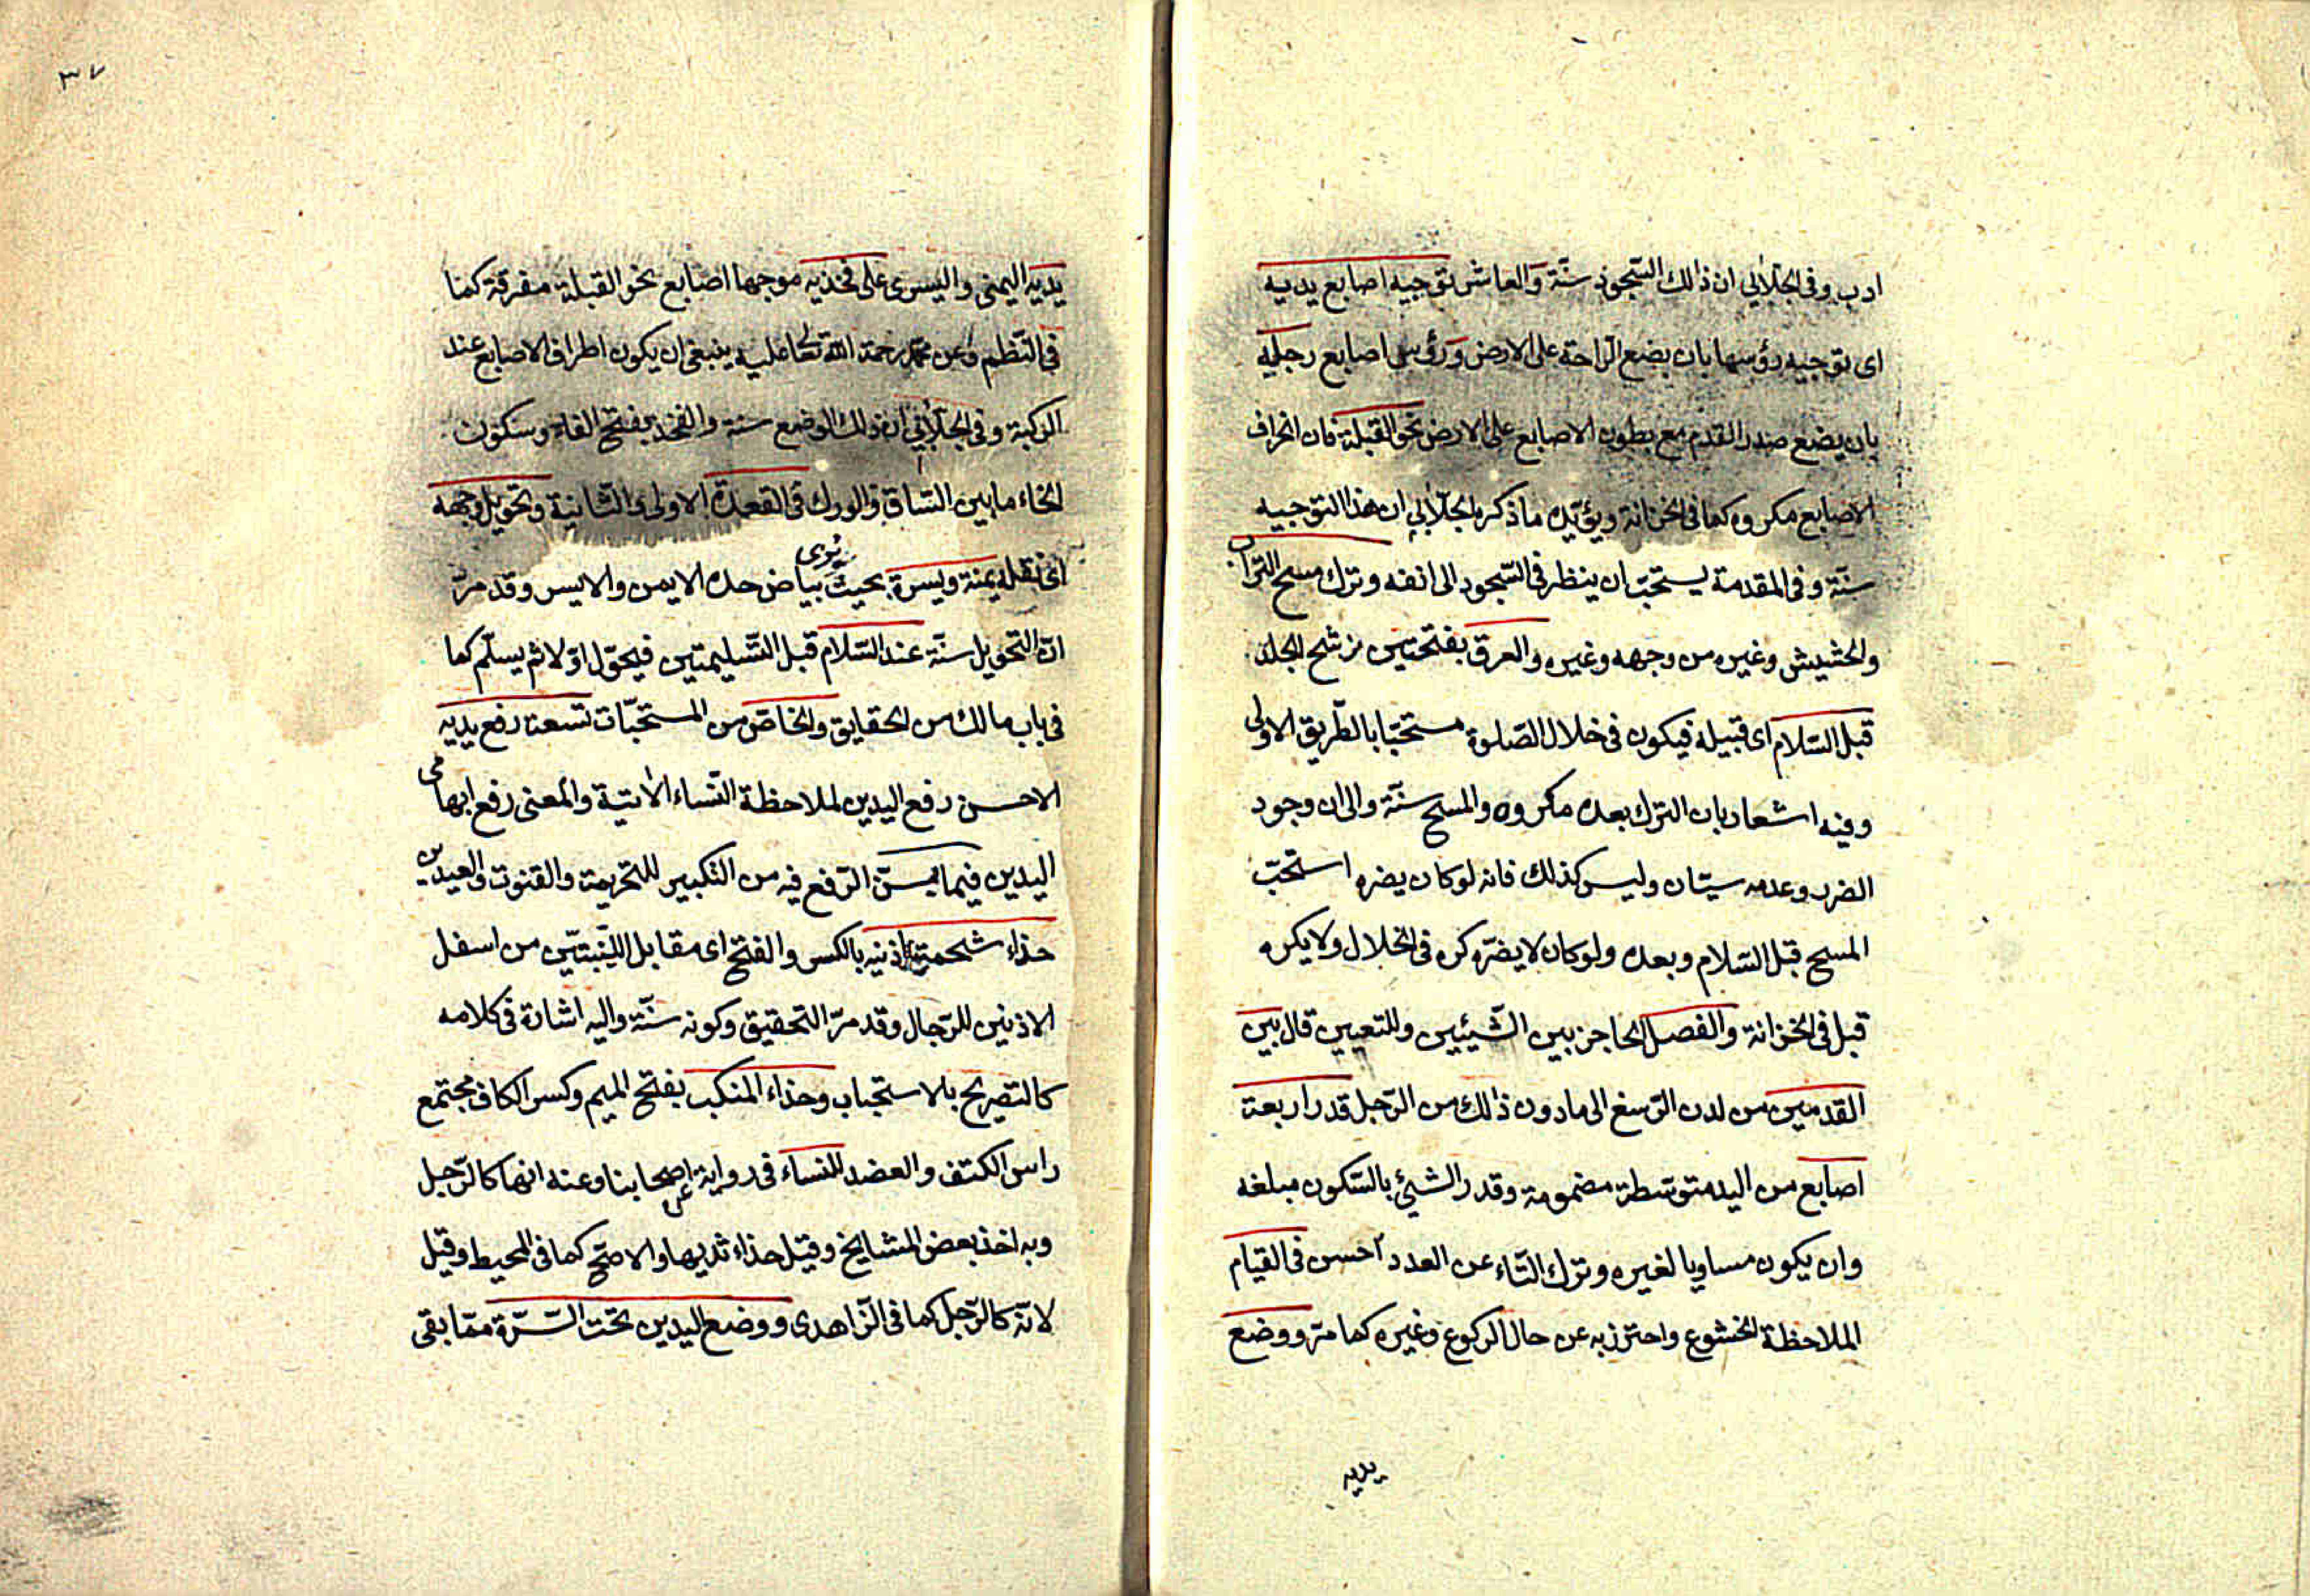 ادب وفى الجلالي ان ذالك السجود سنة والعاشر توجيه اصابع يديه
اى توجيه رؤسها بان يضع الراحة على الارض ورؤس اصابع رجليه
بان يضع صدر القدم مع بطون الاصابع على الارض نحو القبلة فان انحراف
الاصابع مكروه كما فى الخزانة ويؤيده ما ذكره الجلابي ان هذا التوجيه
سنة وفى المقدمة يستحب ان ينظر فى السجود الى انفه وترك مسح التراب
والحشيش وغيره من وجهه وغيره والعرق بفتحتين مرشح الجلد
قبل السلام اى قبيله فيكون فى خلال الصلوة مستحبا بالطريق الاولى
وفيه اشعار بان الترك بعده مكروه والمسح سنة والى ان وجود
الضرر وعدمه سيان وليس كذلك فانه لو كان يضره استحب
المسح قبل السلام وبعده ولو كان لا يضره كره فى الخلال ولا يكره
قبل فى الخزانة والفصل الحاجز بين الشيئين وللتعيين قال بين
القدمين من لدن الرسغ الى ما دون ذالك من الرجل قدر اربعة
اصابع من اليد متوسطة مضمومة وقدر الشيئ بالسكون مبلغه
وان يكون مساويا لغيره وترك التاء عن العدد احسن فى القيام
الملاحظة الخشوع واحترز به عن حال الركوع وغيره كما مر ووضع
يديه
٣٧
يديه اليمنى واليسرى على فخذيه موجها اصابع نحو القبلة مفرقة كما
فى النظم وعن محمد رحمة الله تعا عليه ينبغى ان يكون اطراف الاصابع عند
الركبة وفى الجلابي ان ذلك الوضع سنة والفخذ بفتح الفاء وسكون
الخاء ما بين الساق والورك فى القعدة الاولى والثانية وتحويل وجهه
اى نقله يمنة ويسرة بحيث يرى بياض خده الايمن والايسر وقد مر
ان التحويل سنة عند السلام قبل التسليمتين فيحول اولا ثم يسلم كما
فى باب مالك من الحقايق والخاص من المستحبات تسعة رفع يديه
الاحسن رفع اليدين لملاحظة النساء الاتية والمعنى رفع ابهامى
اليدين فيما يسن الرفع فيه من التكبير للتحريمة والقنوت والعيدين
حذاء شحمة اذنيه بالكسر والفتح اى مقابل اللينتين من اسفل
الاذنين للرجال وقد مر التحقيق وكونه سنة واليه اشارة فى كلامه
كالتصريح بلاستحباب وحذاء المنكب بفتح الميم وكسر الكاف مجتمع
راس الكتف والعضد للنساء فى رواية عن اصحابنا وعنه انها كالرجل
وبه اخذ بعض المشايخ وقيل حذاء ثديها والاصح كما فى المحيط وقيل
لانه كالرجل كما فى الزاهدى ووضع اليدين تحت السرة مما بقى